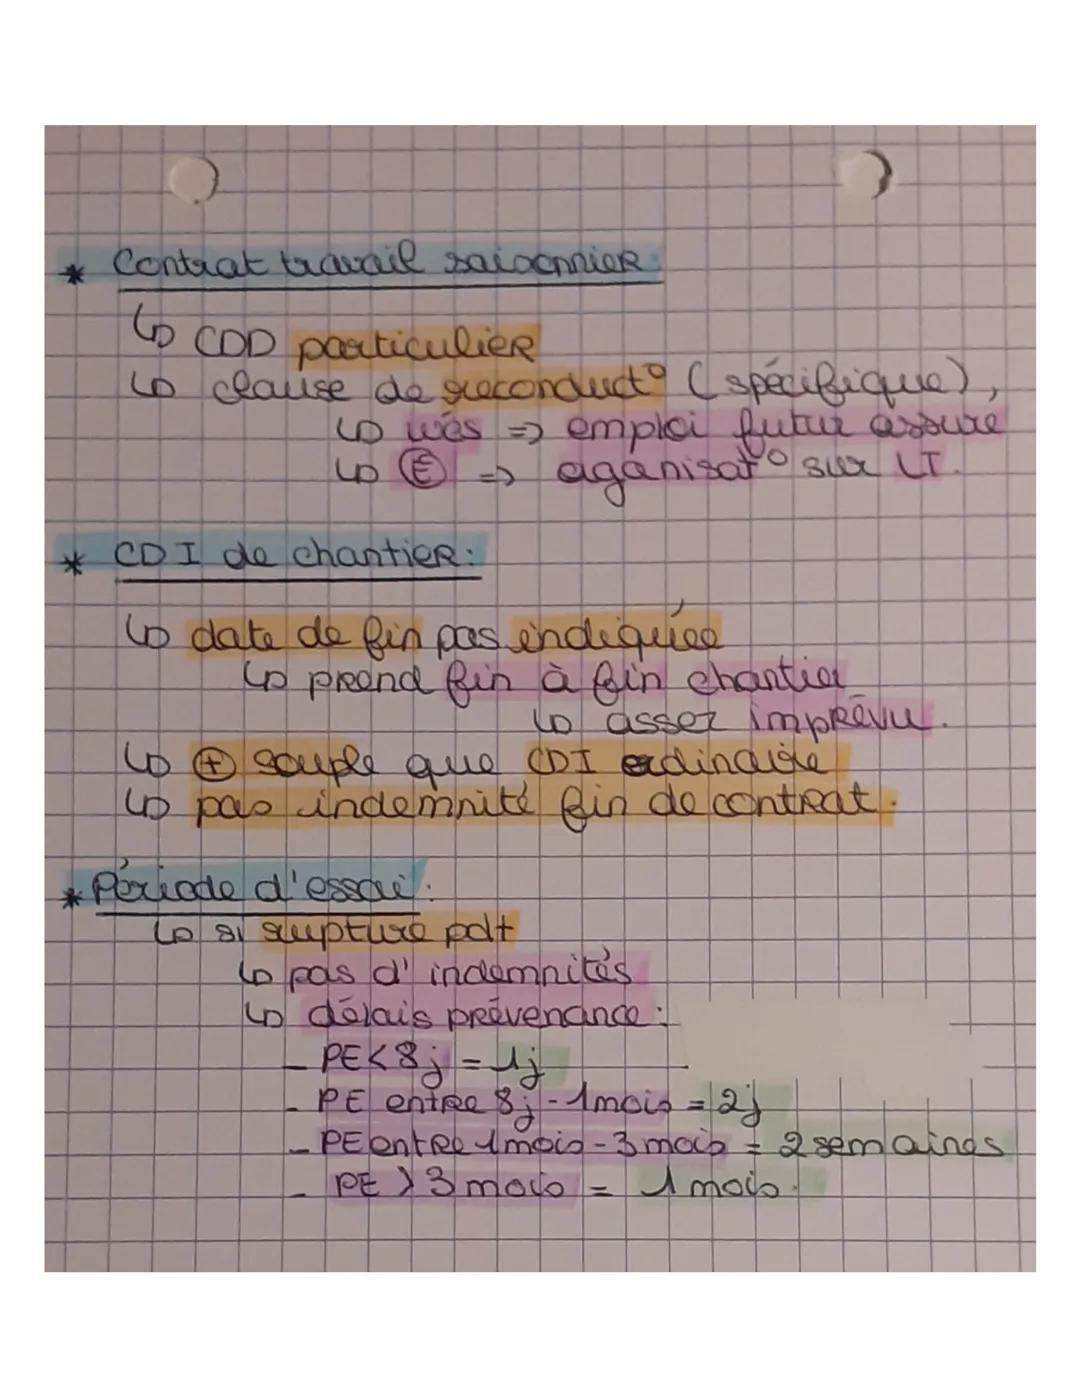 * Contrat travail saisonnier:
↳ CDD particulier
↳ clause de reconduct° (spécifique),
↳ wés => emploi futur assure
↳ Ⓔ => oganisat° sur LT.
* CDI de chantier:
↳ date de fin pas indiquée
↳ prend fin à fin chantier
↳ assez imprévu.
↳ ⊕ souple que CDI ordinaire
↳ pas indemnité fin de contrat.
* Période d'essai:
↳ si rupture pdt
↳ pas d'indemnités
↳ délais prévenance:
- PE < 8j = 1j
- PE entre 8j - 1mois = 2j
- PE entre 1mois - 3mois = 2 semaines
- PE > 3mois = 1 mois.